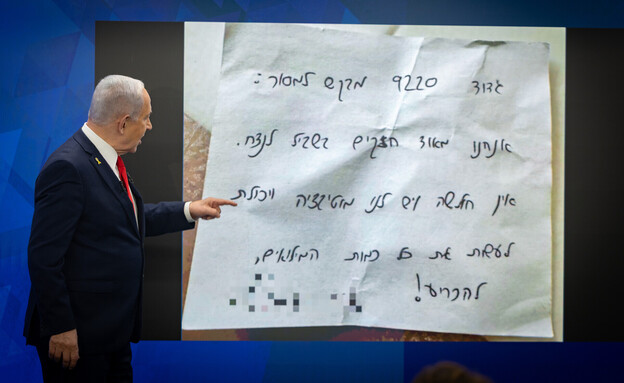 גדוד 9220 מבקש למסור :
אנחנו מאוד חזקים בשביל לנצח.
אין חולשה ויש לנו מוטיבציה ויכולת
לעשות את כל כמות המילואים,
להכריע!